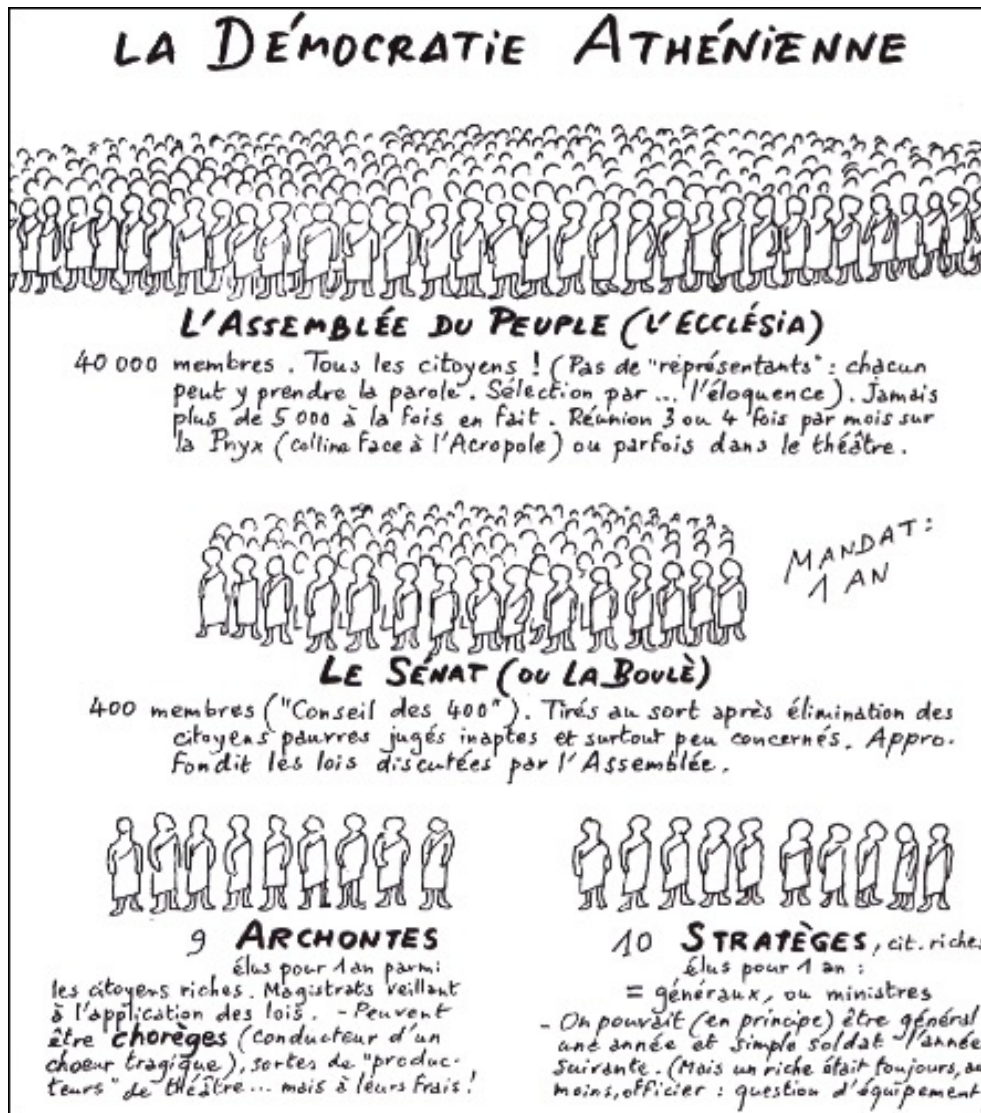 LA DÉMOCRATIE ATHÉNIENNE
L'ASSEMBLÉE DU PEUPLE (L'ECCLÉSIA)
40 000 membres. Tous les citoyens ! (Pas de "représentants" : chacun
peut y prendre la parole. Sélection par ... l'éloquence). Jamais
plus de 5 000 à la fois en fait. Réunion 3 ou 4 fois par mois sur
la Pnyx (colline face à l'Acropole) ou parfois dans le théâtre.
MANDAT :
1 AN
LE SÉNAT (OU LA BOULÈ)
400 membres ("Conseil des 400"). Tirés au sort après élimination des
citoyens pauvres jugés inaptes et surtout peu concernés. Appro-
fondit les lois discutées par l'Assemblée.
9 ARCHONTES
élus pour 1 an parmi
les citoyens riches. Magistrats veillant
à l'application des lois. - Peuvent
être chorèges (conducteur d'un
choeur tragique), sortes de "produc-
teurs" de théâtre... mais à leurs frais !
10 STRATÈGES, cit. riches
élus pour 1 an :
= généraux, ou ministres
- On pouvait (en principe) être général
une année et simple soldat l'année
suivante. (Mais un riche était toujours, au
moins, officier : question d'équipement